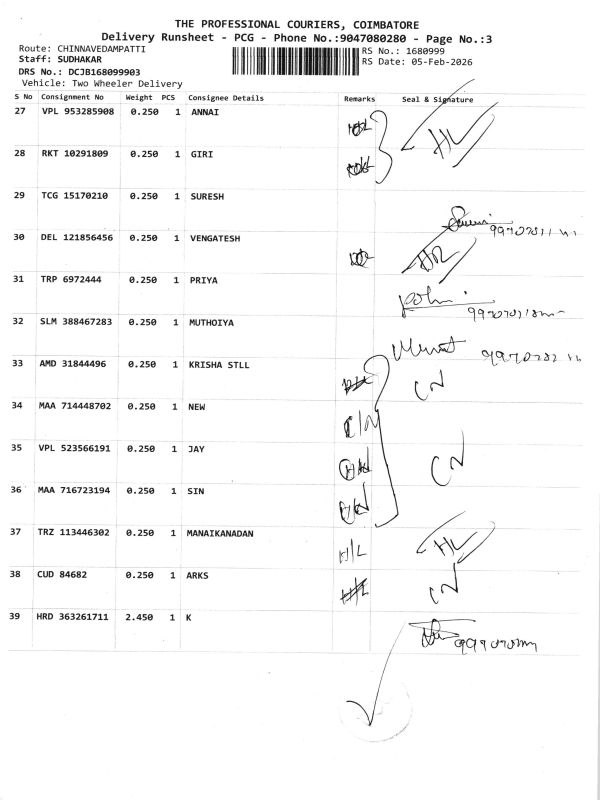 THE PROFESSIONAL COURIERS, COIMBATORE
Delivery Runsheet - PCG - Phone No.:9047080280 - Page No.:3
Route: CHINNAVEDAMPATTI
RS No.: 1680999
Staff: SUDHAKAR
RS Date: 05-Feb-2026
DRS No.: DCJB168099903
Vehicle: Two Wheeler Delivery
S No Consignment No Weight PCS Consignee Details Remarks Seal & Signature
27 VPL 953285908 0.250 1 ANNAI HL
28 RKT 10291809 0.250 1 GIRI
29 TCG 15170210 0.250 1 SURESH
30 DEL 121856456 0.250 1 VENGATESH
31 TRP 6972444 0.250 1 PRIYA
32 SLM 388467283 0.250 1 MUTHOIYA
33 AMD 31844496 0.250 1 KRISHA STLL CN
34 MAA 714448702 0.250 1 NEW
35 VPL 523566191 0.250 1 JAY CN
36 MAA 716723194 0.250 1 SIN
37 TRZ 113446302 0.250 1 MANAIKANADAN H/L HL
38 CUD 84682 0.250 1 ARKS CN
39 HRD 363261711 2.450 1 K